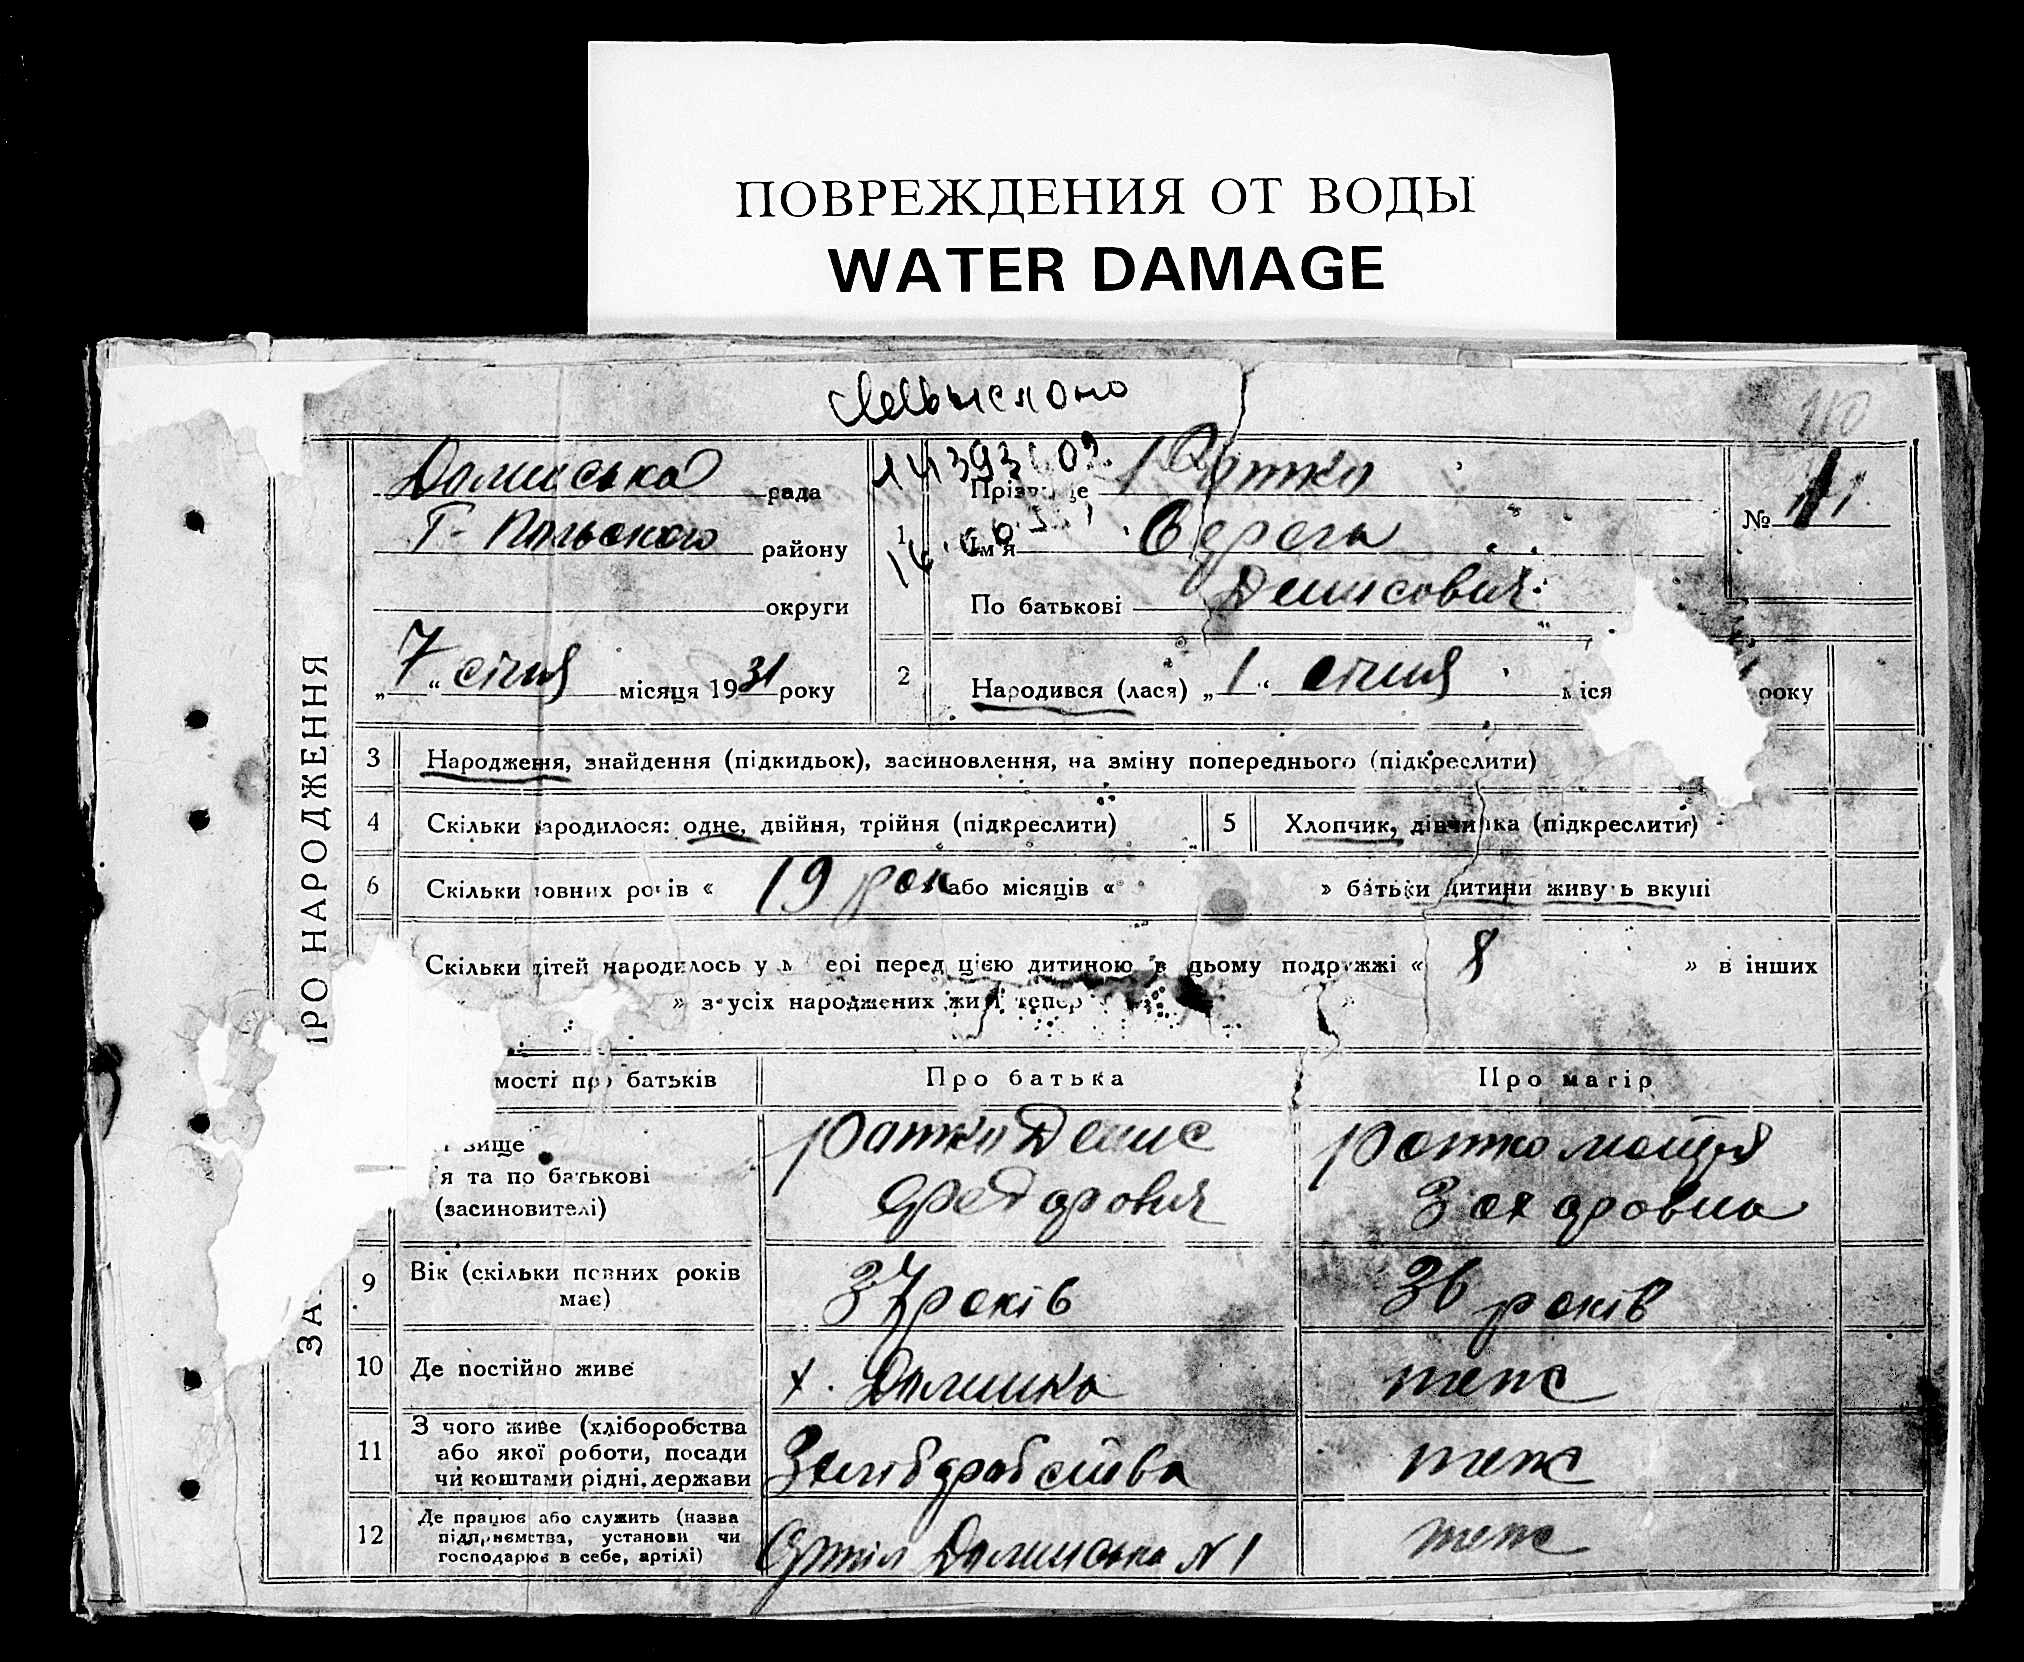 ПОВРЕЖДЕНИЯ ОТ ВОДЫ
WATER DAMAGE
110
Долинська рада
Прізвище Ратко
№ 11
Г-Польского району
1 Ім'я
округи
По батькові Денисович
„7“ січня місяця 1931 року
2 Народився (лася) „1“ січня міся року
РО НАРОДЖЕННЯ
3 Народження, знайдення (підкидьок), засиновлення, на зміну попереднього (підкреслити)
4 Скільки народилося: одне, двійня, трійня (підкреслити)
5 Хлопчик, дівчинка (підкреслити)
6 Скільки повних років « 19 рок або місяців « » батьки дитини живуть вкупі
Скільки дітей народилось у матері перед цією дитиною в цьому подружжі « 8 » в інших
» з усіх народжених живі тепер »
мості про батьків
Про батька
Про матір
звище
я та по батькові
(засиновителі)
Ратко Денис
Федорович
Ратко
Захаровна
9 Вік (скільки повних років
має)
37 років
36 років
10 Де постійно живе
х. Долинка
теж
11 З чого живе (хліборобства
або якої роботи, посади
чи коштами рідні, держави
теж
12 Де працює або служить (назва
підприємства, установи чи
господарює в себе, артілі)
Долинська N 1
теж